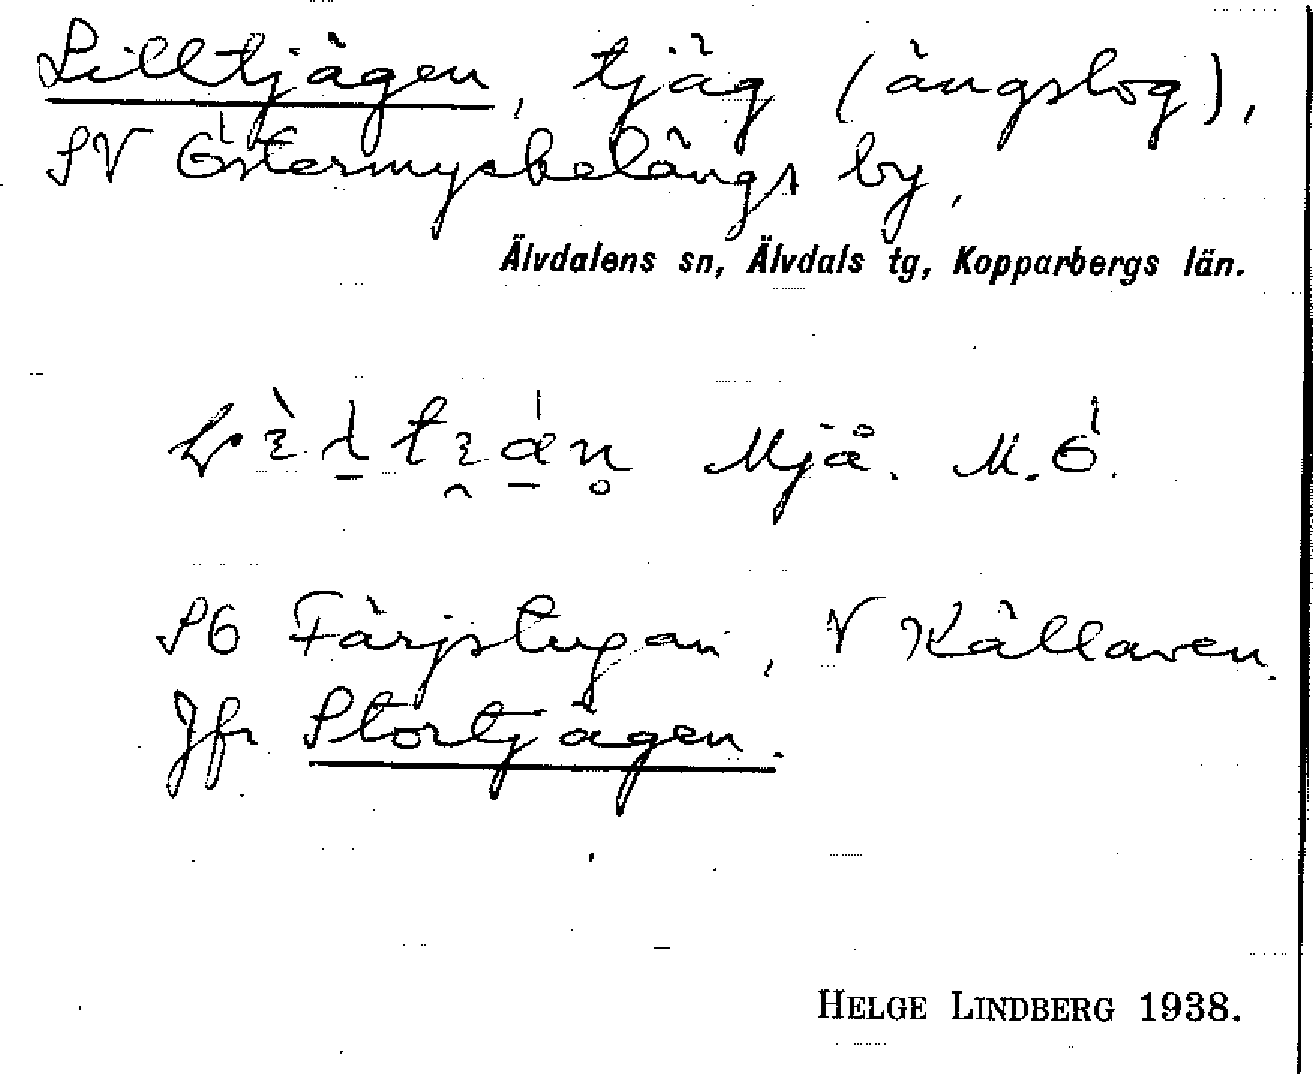 Lilltjägen, tjäg (ängslog),
SV Östermyckelängs by,
Älvdalens sn, Älvdals tg, Kopparbergs län.
Mjå. M.Ö.
SÖ Färjstugan, V Källaren.
Jfr Stortjägen.
HELGE LINDBERG 1938.